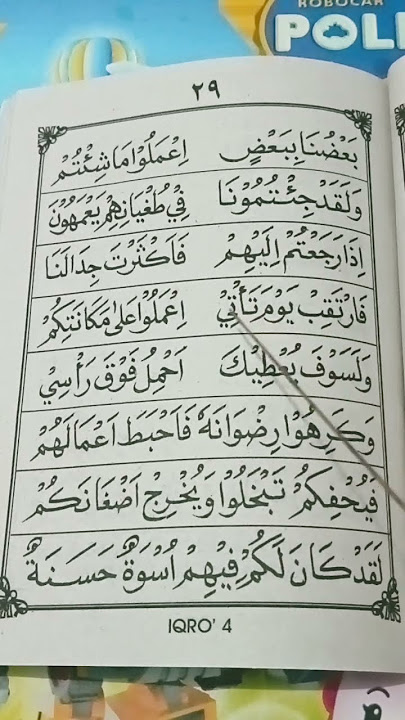 ROBOCAR
POLI
٢٩
بَعْضُنَا بِبَعْضٍ اِعْمَلُوْا مَا شِئْتُمْ
وَلَقَدْ جِئْتُمُوْنَا فِيْ طُغْيَانِهِمْ يَعْمَهُوْنَ
اِذَا رَجَعْتُمْ اِلَيْهِمْ فَاَكْثَرْتَ جِدَالَنَا
فَارْتَقِبْ يَوْمَ تَأْتِيْ اِعْمَلُوْا عَلٰى مَكَانَتِكُمْ
وَلَسَوْفَ يُعْطِيْكَ اَحْمِلُ فَوْقَ رَأْسِيْ
وَكَرِهُوْا رِضْوَانَهٗ فَاَحْبَطَ اَعْمَالَهُمْ
فَيُحْفِكُمْ تَبْخَلُوْا وَيُخْرِجْ اَضْغَانَكُمْ
لَقَدْ كَانَ لَكُمْ فِيْهِمْ اُسْوَةٌ حَسَنَةٌ
IQRO' 4